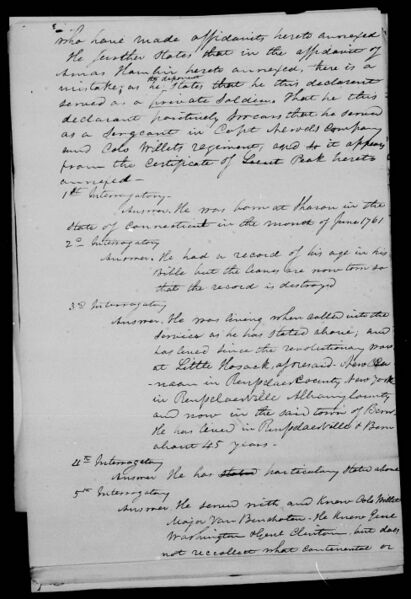 who have made affidavits hereto annexed
He further States that in the affidavit of
Amas Hamlin hereto annexed, there is a
mistake; as he the deponent States that he this declarant
served as a private Soldier. That he this
declarant positively Swears that he served
as a Sergeant in Capt Company
and Cols Willets regiment, and so it appears
from the Certificate of Lieut Peak hereto
annexed—
1st Interrogatory
Answer. He was born at Sharon in the
State of Connecticut in the month of June 1761
2d Interrogatory
Answer. He had a record of his age in his
Bible but the leaves are now torn so
that the record is destroyed
3d Interrogatory
Answer. He was living when called into the
Service as he has stated above; and
has lived since the revolutionary war
at Little Hosack, aforesaid. New Ca-
naan in Renselaer County, New York
in Renselaerville Albany County
and now in the said town of Bern
He has lived in Renselaerville & Bern
about 45 years.
4th Interrogatory
Answer He has stated particulary Stated above
5th Interrogatory
Answer He served with, and Knew Colo Willet
Major Van Benshoten. He Knew Genl
Washington & Genl Clinton, but does
not recollect what continental or